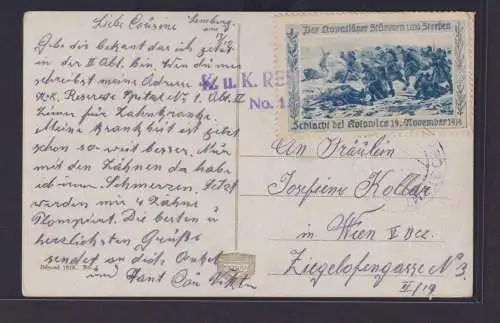 Liebe Cousine
Lemberg
am
Gebe dir bekant das ich jetzt
in der II Abt. bin. Wen du mir
schreibst meine Adresse
K.u.K. Reserve Spital No 1. Abt. II
Zimer für Zahnkranke.
Meine Krankheit ist jetzt
schon so weit besser. Nur
mit den Zähnen da habe
ich imer Schmerzen. Jetzt
werden mir 4 Zähne
Plompirt. Die besten u
herzlichsten Grüße
sendet an dich, Onkel
und Tant Cou
Déposé 1918.
K. u. K. RES
No. 1
Der Truppenjäger Stürmen und Sterben
Schlacht bei Kotowice 19. November 1914
An Fräulein
Josefine Kollar
in Wien V Bez.
Ziegelofengasse No 3.
II/19